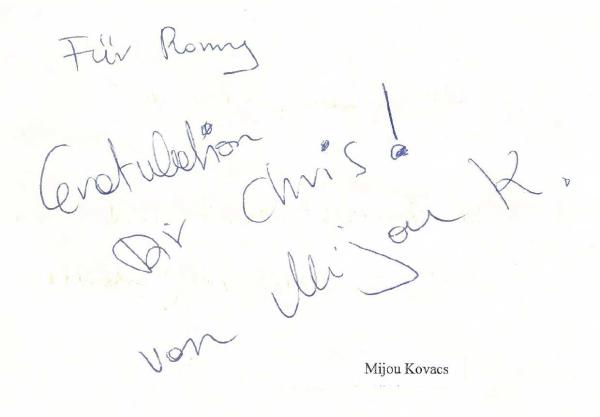 Für Romy
Gratulation
Dir Chris!
von Mijou K.
Mijou Kovacs